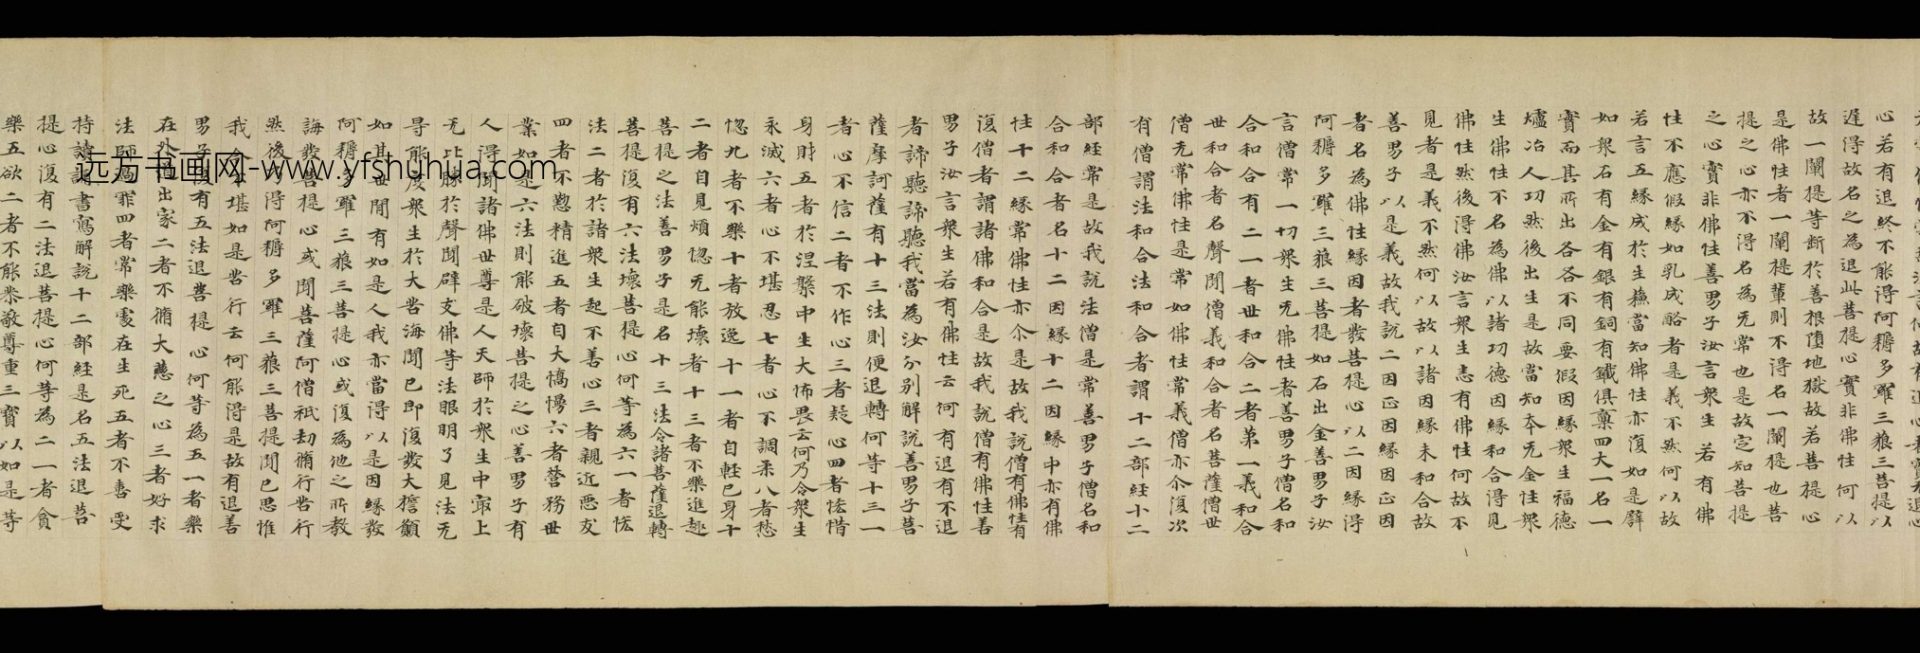 心若有退終不能得阿耨多羅三藐三菩提以
遅得故名之為退此菩提心實非佛性何以
故一闡提等斷於善根墮地獄故若菩提心
是佛性者一闡提輩則不得名一闡提也菩
提之心亦不得名為无常也是故定知菩提
之心實非佛性善男子汝言衆生若有佛
性不應假緣如乳成酪者是義不然何以故
若言五緣成於生蘓當知佛性亦復如是譬
如衆石有金有銀有銅有鐵俱稟四大一名一
實而其所出各各不同要假因緣衆生福德
爐冶人功然後出生是故當知本无金性衆
生佛性不名為佛以諸功德因緣和合得見
佛性然後得佛汝言衆生悉有佛性何故不
見者是義不然何以故以諸因緣未和合故
善男子以是義故我說二因正因緣因正因
者名為佛性緣因者發菩提心以二因緣得
阿耨多羅三藐三菩提如石出金善男子汝
言僧常一切衆生无佛性者善男子僧名和
合和合有二一者世和合二者第一義和合
世和合者名聲聞僧義和合者名菩薩僧世
僧无常佛性是常如佛性常義僧亦尒復次
有僧謂法和合法和合者謂十二部經十二
部經常是故我說法僧是常善男子僧名和
合和合者名十二因緣十二因緣中亦有佛
性十二緣常佛性亦尒是故我說僧有佛性有
復僧者謂諸佛和合是故我說僧有佛性善
男子汝言衆生若有佛性云何有退有不退
者諦聽諦聽我當為汝分別解說善男子菩
薩摩訶薩有十三法則便退轉何等十三一
者心不信二者不作心三者疑心四者恡惜
身財五者於涅槃中生大怖畏云何乃令衆生
永滅六者心不堪忍七者心不調柔八者愁
惱九者不樂十者放逸十一者自輕己身十
二者自見煩惱无能壞者十三者不樂進趣
菩提之法善男子是名十三法令諸菩薩退轉
菩提復有六法壞菩提心何等為六一者恡
法二者於諸衆生起不善心三者親近惡友
四者不懃精進五者自大憍慢六者營務世
業如是六法則能破壞菩提之心善男子有
人得聞諸佛世尊是人天師於衆生中冣上
无比勝於聲聞辟支佛等法眼明了見法无
㝵能度衆生於大苦海聞已即復發大擔願
如其世間有如是人我亦當得以是因緣發
阿耨多羅三藐三菩提心或復為他之所教
誨發菩提心或聞菩薩阿僧祇劫脩行苦行
然後得阿耨多羅三藐三菩提聞已思惟
我今不堪如是苦行云何能得是故有退善
男子復有五法退菩提心何等為五一者樂
在外道出家二者不脩大慈之心三者好求
法師過罪四者常樂處在生死五者不喜受
持讀誦書寫解說十二部經是名五法退菩
提心復有二法退菩提心何等為二一者貪
樂五欲二者不能恭敬尊重三寶以如是等
远方书画网-www.yfshuhua.com